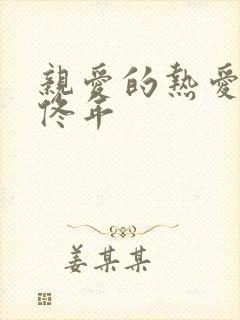 親愛的熱愛
佟年
姜某某